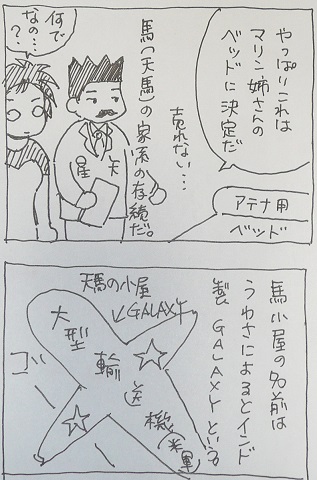 やっぱりこれは
マリン姉さんの
ベッドに決定だ
アテナ用
ベッド
売れない…
馬(天馬)の家系の存続だ。
星矢
何で
なの…
?
馬小屋の名前は
うわさによるとインド
製GALAXYという
天馬の小屋
GALAXY
大型輸送機(米軍)
ゴー